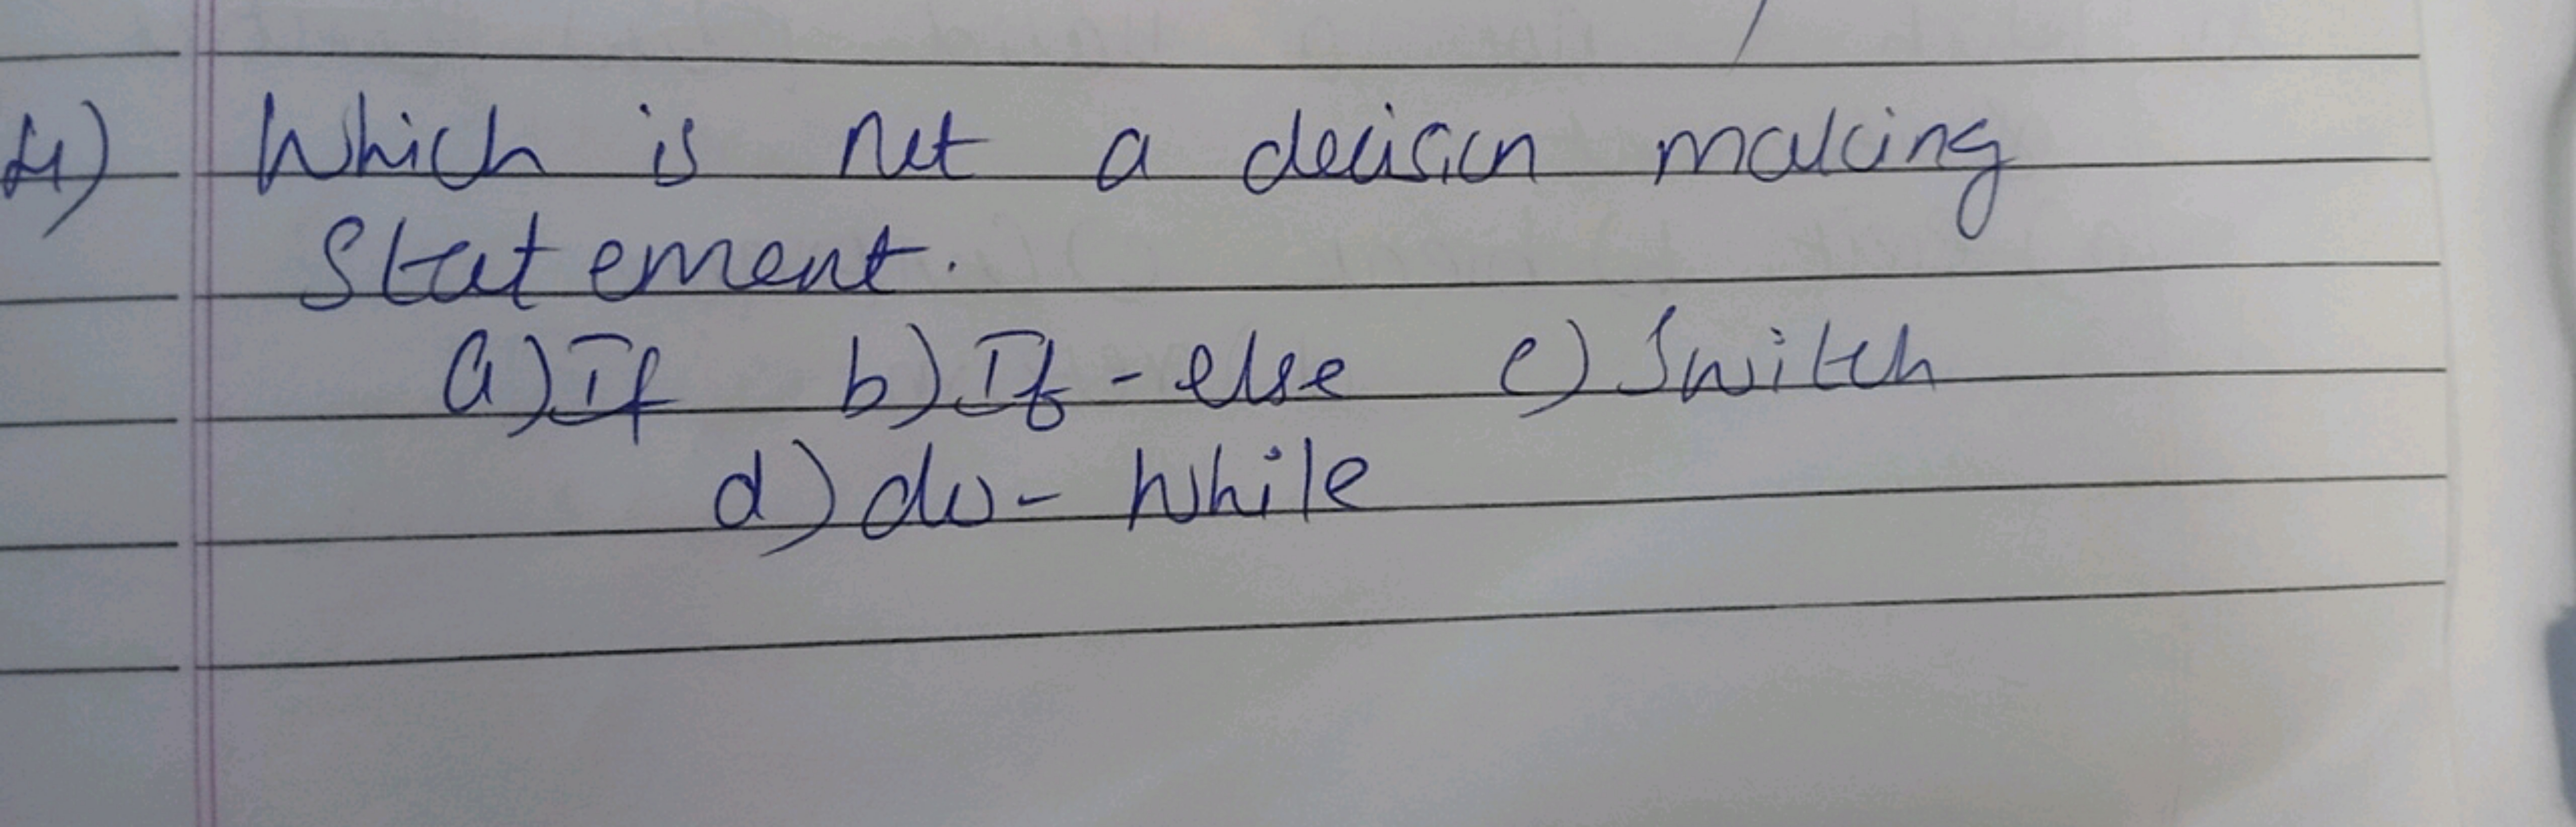 4) Which is not a decision making
Statement.
a) If b) If - else c) Switch
d) do - while